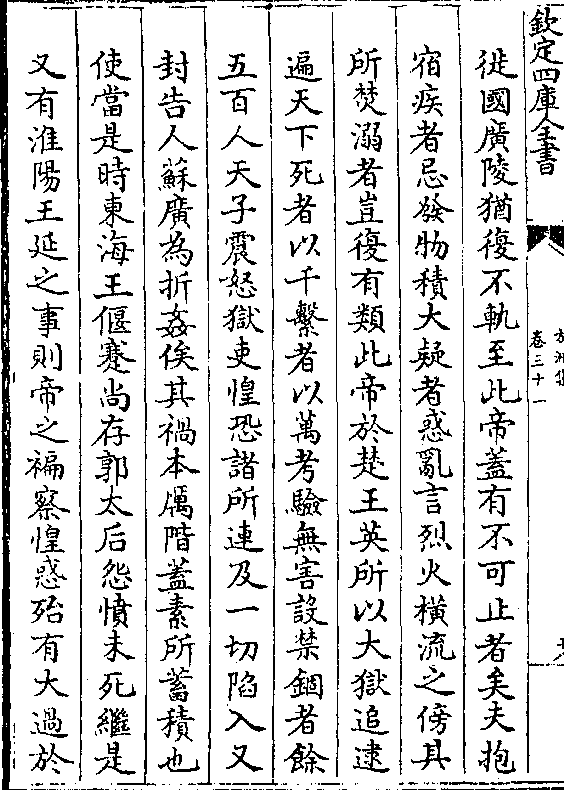 欽定四庫全書
卷三十一
徙國廣陵猶復不軌至此帝蓋有不可止者矣夫抱
宿疾者忌發物積大疑者惑亂言烈火橫流之傍其
所焚溺者豈復有類此帝於楚王英所以大獄追逮
遍天下死者以千繫者以萬考驗無害設禁錮者餘
五百人天子震怒獄吏惶恐諸所連及一切陷入又
封告人蘇廣為折姦侯其禍本厲階蓋素所蓄積也
使當是時東海王偃蹇尚存郭太后怨憤未死繼是
又有淮陽王延之事則帝之褊察惶惑殆有大過於